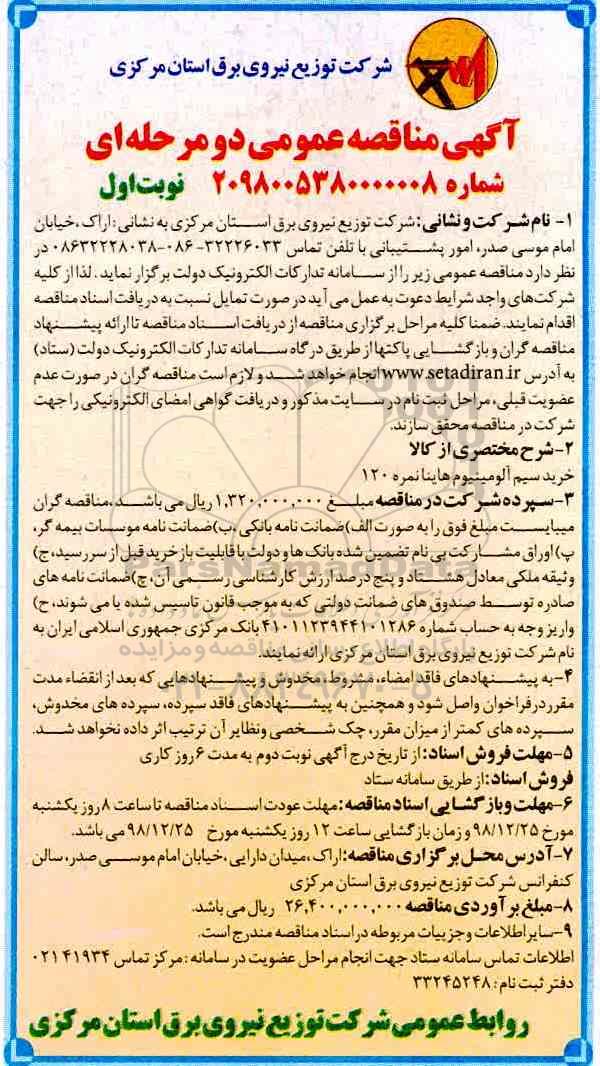 شرکت توزیع نیروی برق استان مرکزی
آگهی مناقصه عمومی دو مرحله ای
شماره ۲۰۹۸۰۰۵۳۸۰۰۰۰۰۰۸ نوبت اول
۱- نام شرکت و نشانی: شرکت توزیع نیروی برق استان مرکزی به نشانی: اراک، خیابان
امام موسی صدر، امور پشتیبانی با تلفن تماس ۳۲۲۲۶۰۳۳-۰۸۶ -۰۸۶۳۲۲۲۸۰۳۸ در
نظر دارد مناقصه عمومی زیر را از سامانه تدارکات الکترونیک دولت برگزار نماید. لذا از کلیه
شرکت‌های واجد شرایط دعوت به عمل می آید در صورت تمایل نسبت به دریافت اسناد مناقصه
اقدام نمایند. ضمنا کلیه مراحل برگزاری مناقصه از دریافت اسناد مناقصه تا ارائه پیشنهاد
مناقصه گران و بازگشایی پاکتها از طریق درگاه سامانه تدارکات الکترونیک دولت (ستاد)
به آدرس www.setadiran.ir انجام خواهد شد و لازم است مناقصه گران در صورت عدم
عضویت قبلی، مراحل ثبت نام در سایت مذکور و دریافت گواهی امضای الکترونیکی را جهت
شرکت در مناقصه محقق سازند.
۲-شرح مختصری از کالا
خرید سیم آلومینیوم هاینا نمره ۱۲۰
۳-سپرده شرکت در مناقصه مبلغ ۱,۳۲۰,۰۰۰,۰۰۰ ریال می باشد، مناقصه گران
میبایست مبلغ فوق را به صورت الف)ضمانت نامه بانکی ،ب)ضمانت نامه موسسات بیمه گر،
پ)اوراق مشارکت بی نام تضمین شده بانک ها و دولت با قابلیت بازخرید قبل از سررسید، ج)
وثیقه ملکی معادل هشتاد و پنج درصد ارزش کارشناسی رسمی آن، چ)ضمانت نامه های
صادره توسط صندوق های ضمانت دولتی که به موجب قانون تاسیس شده یا می شوند، ح)
واریز وجه به حساب شماره ۴۱۰۱۱۲۳۹۴۴۱۰۱۲۸۶ بانک مرکزی جمهوری اسلامی ایران به
نام شرکت توزیع نیروی برق استان مرکزی ارائه نمایند.
۴-به پیشنهادهای فاقد امضاء، مشروط، مخدوش و پیشنهادهایی که بعد از انقضاء مدت
مقرر در فراخوان واصل شود و همچنین به پیشنهادهای فاقد سپرده، سپرده های مخدوش،
سپرده های کمتر از میزان مقرر، چک شخصی و نظایر آن ترتیب اثر داده نخواهد شد.
۵-مهلت فروش اسناد: از تاریخ درج آگهی نوبت دوم به مدت ۶ روز کاری
فروش اسناد: از طریق سامانه ستاد
۶-مهلت و بازگشایی اسناد مناقصه: مهلت عودت اسناد مناقصه تا ساعت ۸ روز یکشنبه
مورخ ۹۸/۱۲/۲۵ و زمان بازگشایی ساعت ۱۲ روز یکشنبه مورخ ۹۸/۱۲/۲۵ می باشد.
۷-آدرس محل برگزاری مناقصه: اراک، میدان دارایی، خیابان امام موسی صدر، سالن
کنفرانس شرکت توزیع نیروی برق استان مرکزی
۸-مبلغ برآوردی مناقصه ۲۶,۴۰۰,۰۰۰,۰۰۰ ریال می باشد.
۹-سایر اطلاعات و جزییات مربوطه در اسناد مناقصه مندرج است.
اطلاعات تماس سامانه ستاد جهت انجام مراحل عضویت در سامانه: مرکز تماس ۰۲۱۴۱۹۳۴
دفتر ثبت نام: ۳۳۲۴۵۲۴۸
روابط عمومی شرکت توزیع نیروی برق استان مرکزی
ParsNamadData
پایگاه اطلاع رسانی مناقصه و مزایده
۰۲۱-۸۸۳۴۹۶۷۰-۵